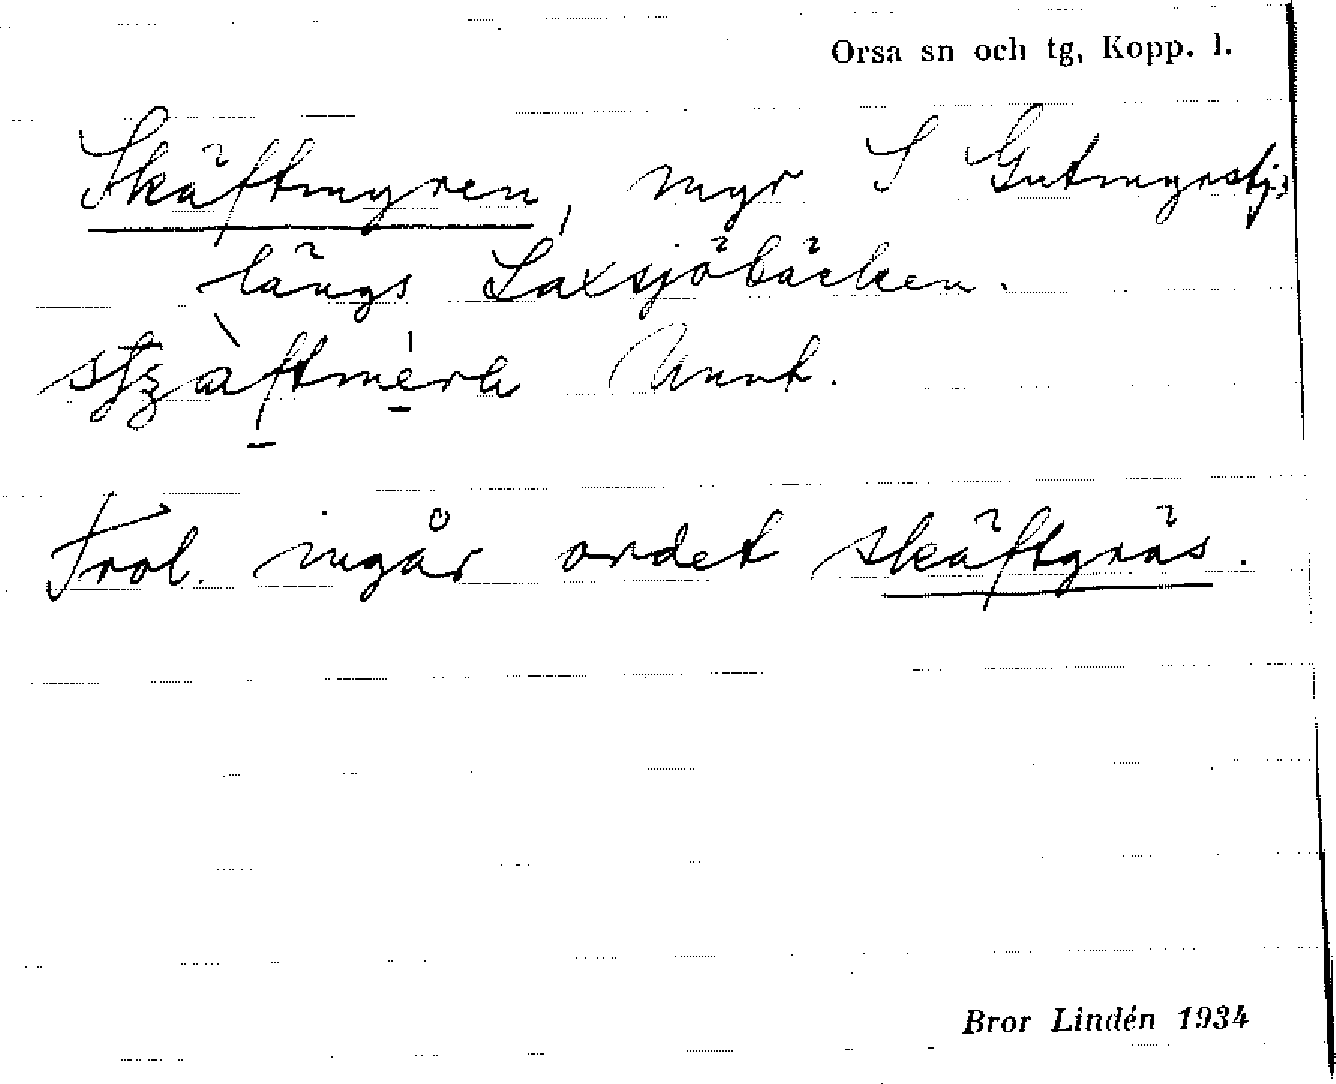 Orsa sn och tg, Kopp. l.
Skäftmyren, myr S Gutmyrstj.
längs Laxsjöbäcken.
Trol. ingår ordet skäftgräs.
Bror Lindén 1934